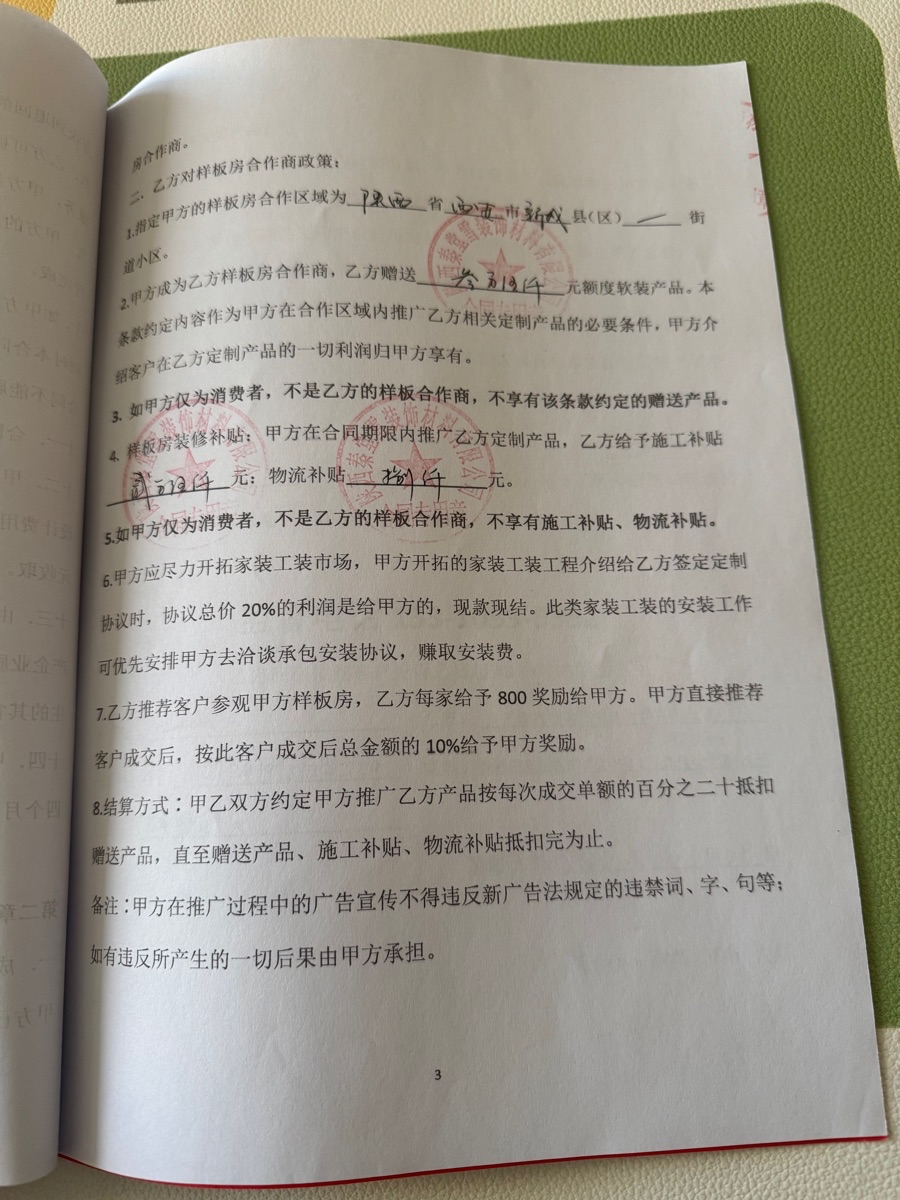 房合作商。
二、乙方对样板房合作商政策：
1.指定甲方的样板房合作区域为 陕西 省 西安 市 新城 县(区) 一 街
道小区。
2.甲方成为乙方样板房合作商，乙方赠送 叁万 仟 元额度软装产品。本
条款约定内容作为甲方在合作区域内推广乙方相关定制产品的必要条件，甲方介
绍客户在乙方定制产品的一切利润归甲方享有。
3. 如甲方仅为消费者，不是乙方的样板合作商，不享有该条款约定的赠送产品。
4. 样板房装修补贴：甲方在合同期限内推广乙方定制产品，乙方给予施工补贴
贰万 仟 元：物流补贴 捌仟 元。
5.如甲方仅为消费者，不是乙方的样板合作商，不享有施工补贴、物流补贴。
6.甲方应尽力开拓家装工装市场，甲方开拓的家装工装工程介绍给乙方签定定制
协议时，协议总价 20%的利润是给甲方的，现款现结。此类家装工装的安装工作
可优先安排甲方去洽谈承包安装协议，赚取安装费。
7.乙方推荐客户参观甲方样板房，乙方每家给予 800 奖励给甲方。甲方直接推荐
客户成交后，按此客户成交后总金额的 10%给予甲方奖励。
8.结算方式：甲乙双方约定甲方推广乙方产品按每次成交单额的百分之二十抵扣
赠送产品，直至赠送产品、施工补贴、物流补贴抵扣完为止。
备注：甲方在推广过程中的广告宣传不得违反新广告法规定的违禁词、字、句等；
如有违反所产生的一切后果由甲方承担。
3